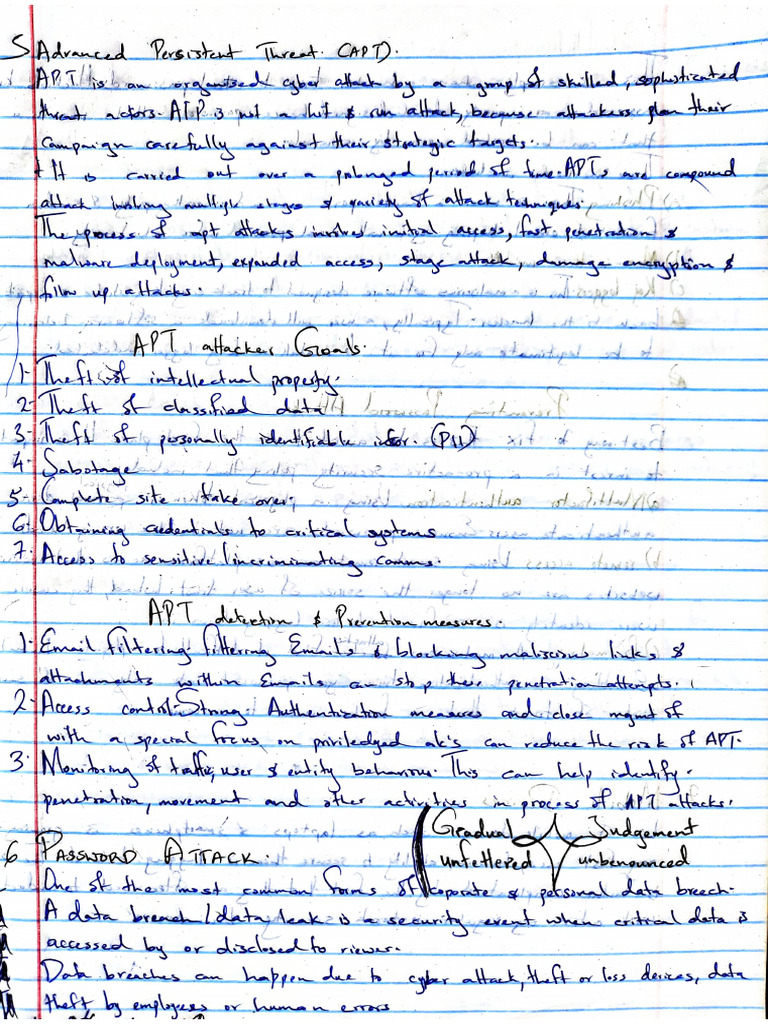 5 Advanced Persistent Threat (APT).
APT is an organised cyber attack by a group of skilled, sophisticated
threat actors. ATP is not a hit & run attack, because attackers plan their
campaign carefully against their strategic targets.
+ It is carried out over a prolonged period of time. APTs are compound
attack involving multiple stages & variety of attack techniques.
The process of apt attacks involves initial access, fast penetration &
malware deployment, expanded access, stage attack, damage encryption &
follow up attacks.
APT attacker Goals.
1- Theft of intellectual property.
2- Theft of classified data
3- Theft of personally identifiable infor. (PII)
4- Sabotage
5- Complete site take over.
6- Obtaining credentials to critical systems
7- Access to sensitive/incriminating comms.
APT detection & Prevention measures.
1- Email filtering- filtering Emails & blocking maliscious links &
attachments within Emails can stop these penetration attempts.
2- Access control- Strong Authentication measures and close mgmt of
with a special focus on priviledged ak's can reduce the risk of APT.
3- Monitoring of traffic, user & entity behaviour. This can help identify
penetration, movement and other activities in process of APT attacks.
Gradual Judgement
6 PASSWORD ATTACK. unfettered unbenounced
One of the most common forms of coporate & personal data breach.
A data breach/data leak is a security event when critical data is
accessed by or disclosed to viewer.
Data breaches can happen due to cyber attack, theft or loss devices, data
theft by employees or human errors